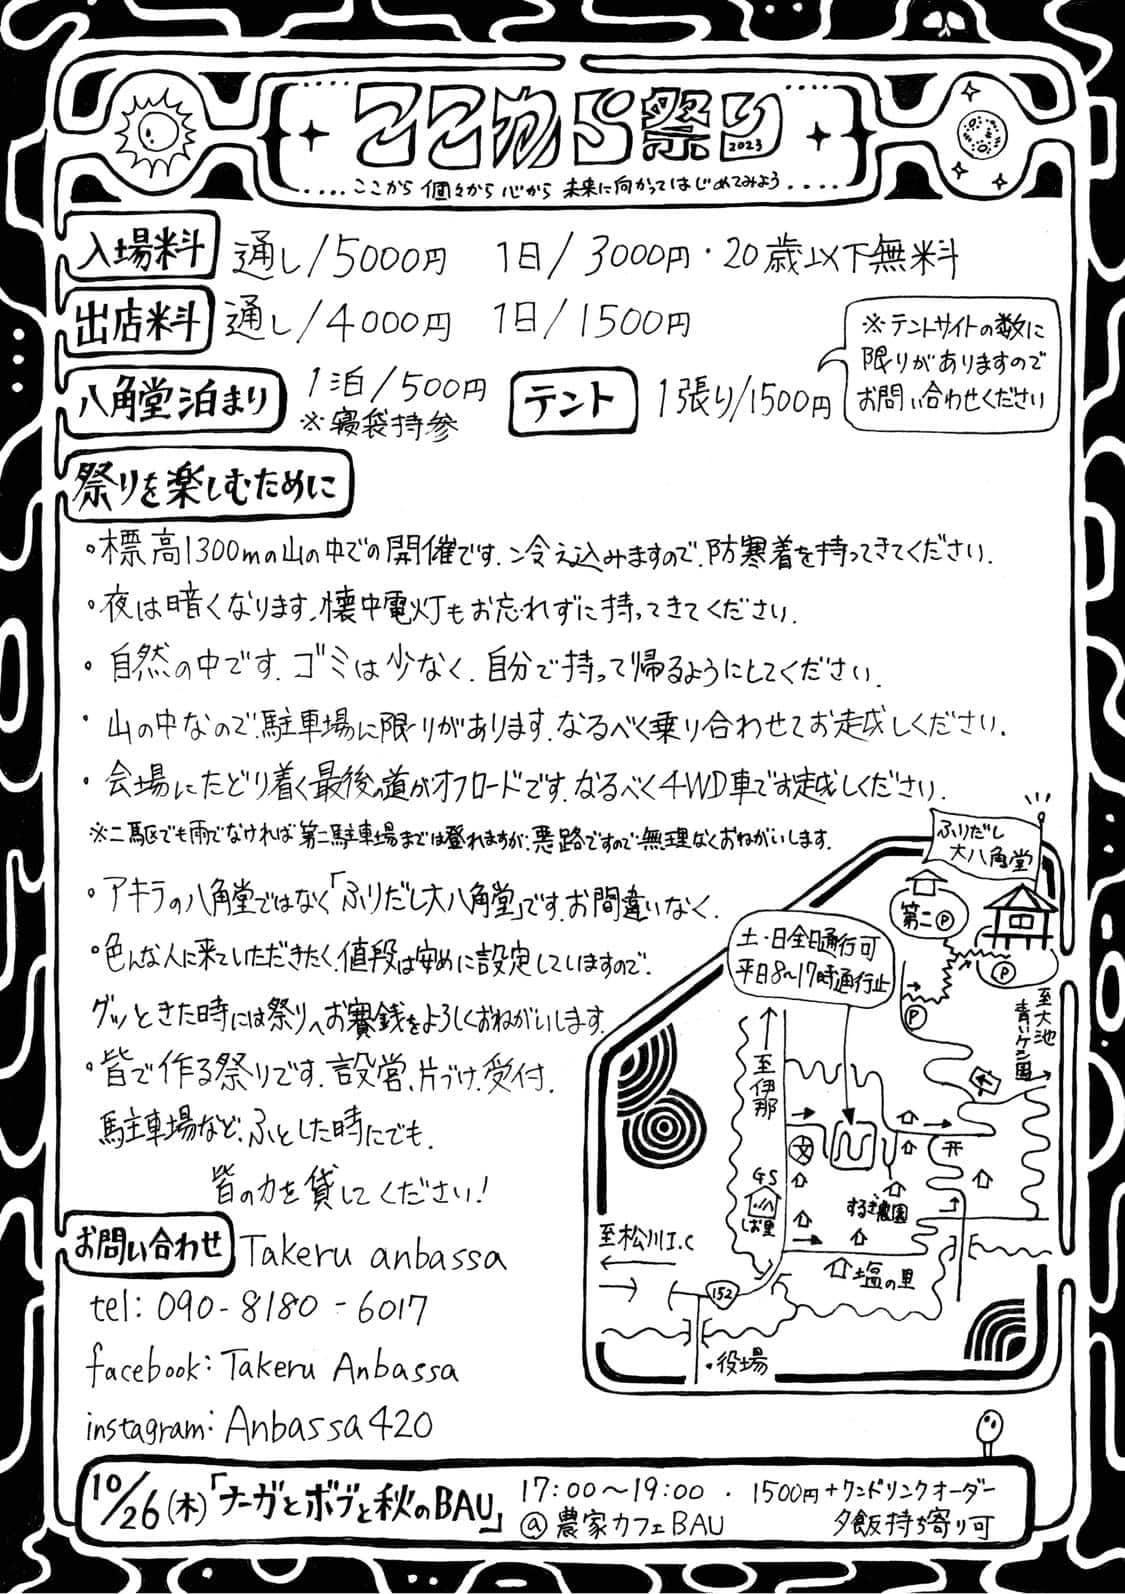 ここから祭り
2023
ここから 個々から 心から 未来に向かってはじめてみよう
入場料 通し/5000円 1日/3000円・20歳以下無料
出店料 通し/4000円 1日/1500円
※テントサイトの数に
限りがありますので
お問い合わせください
八角堂泊まり 1泊/500円
※寝袋持参
テント 1張り/1500円
祭りを楽しむために
・標高1300mの山の中での開催です。冷え込みますので、防寒着を持ってきてください。
・夜は暗くなります、懐中電灯もお忘れずに持ってきてください。
・自然の中です。ゴミは少なく、自分で持って帰るようにしてください。
・山の中なので、駐車場に限りがあります。なるべく乗り合わせてお越しください。
・会場にたどり着く最後の道がオフロードです。なるべく4WD車でお越しください。
※二駆でも雨でなければ第二駐車場までは登れますが、悪路ですので無理なくおねがいします。
・アキラの八角堂ではなく「ふりだし大八角堂」です。お間違いなく。
・色んな人に来ていただきたく、値段は安めに設定していますので、
グッときた時には祭りへお賽銭をよろしくおねがいします。
・皆で作る祭りです。設営、片づけ、受付、
駐車場など、ふとした時にでも、
皆の力を貸してください!
ふりだし
大八角堂
第二 P
P
P
土・日全日通行可
平日8〜17時通行止
至大池
青いケシ園
至伊那
文
GS
しお里
するぎ農園
塩の里
至松川I.C
152
・役場
お問い合わせ Takeru anbassa
tel: 090-8180-6017
facebook: Takeru Anbassa
instagram: Anbassa420
10/26(木)「ナーガとボブと秋のBAU」
17:00〜19:00 ・ 1500円+ワンドリンクオーダー
@農家カフェBAU 夕飯持ち寄り可